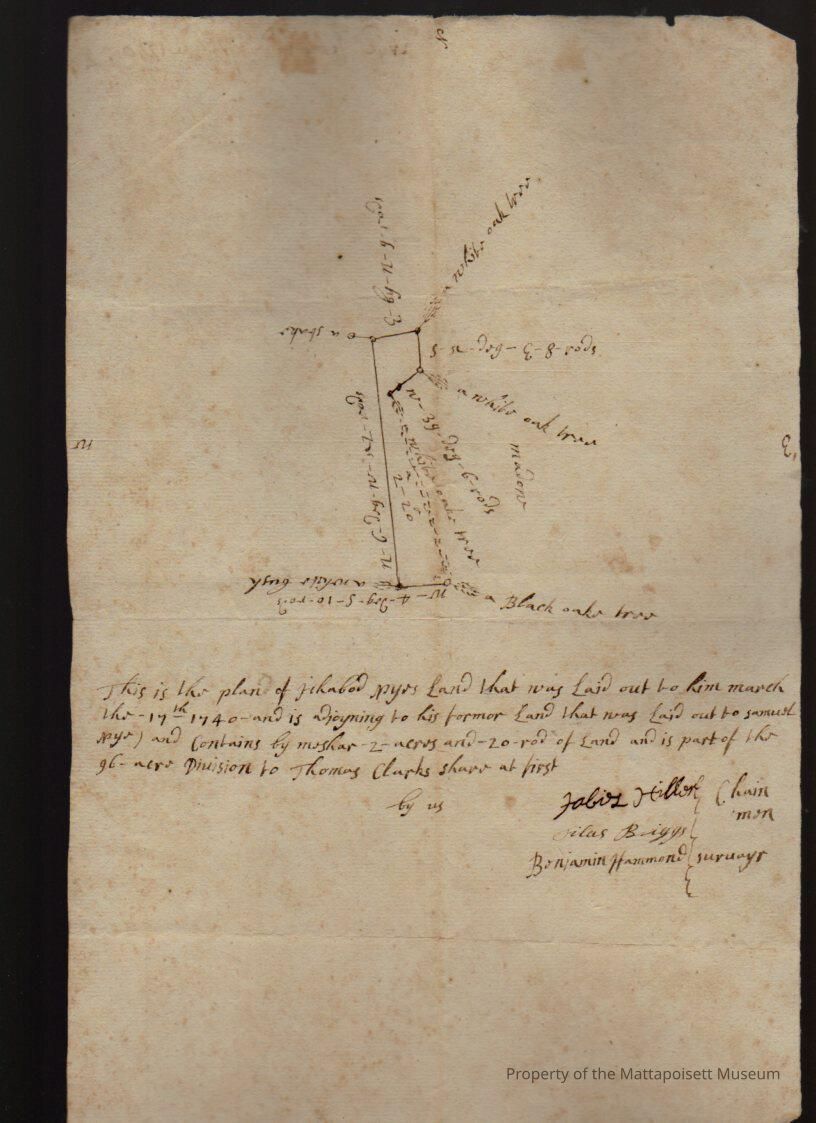 N
a white oak tree
a stake
S-n-deg-E-8-rods
a white oak tree
w-39-deg-6-rods
white oake tree
a
2-20
madow
W
E
a white bush
w-4-deg-S-10-rods
a Black oake tree
This is the plan of Jchabod nyes Land that was Laid out to him march
the-17th 1740-and is adjoyning to his former Land that was Laid out to samuel
nye) and Contains by meshar-2-acres and-20-rod of Land and is part of the
96-acre Division to Thomas Clarks share at first
by us
Jabez Hiller
Chain
men
silas Briggs
Benjamin Hammond survayr
Property of the Mattapoisett Museum